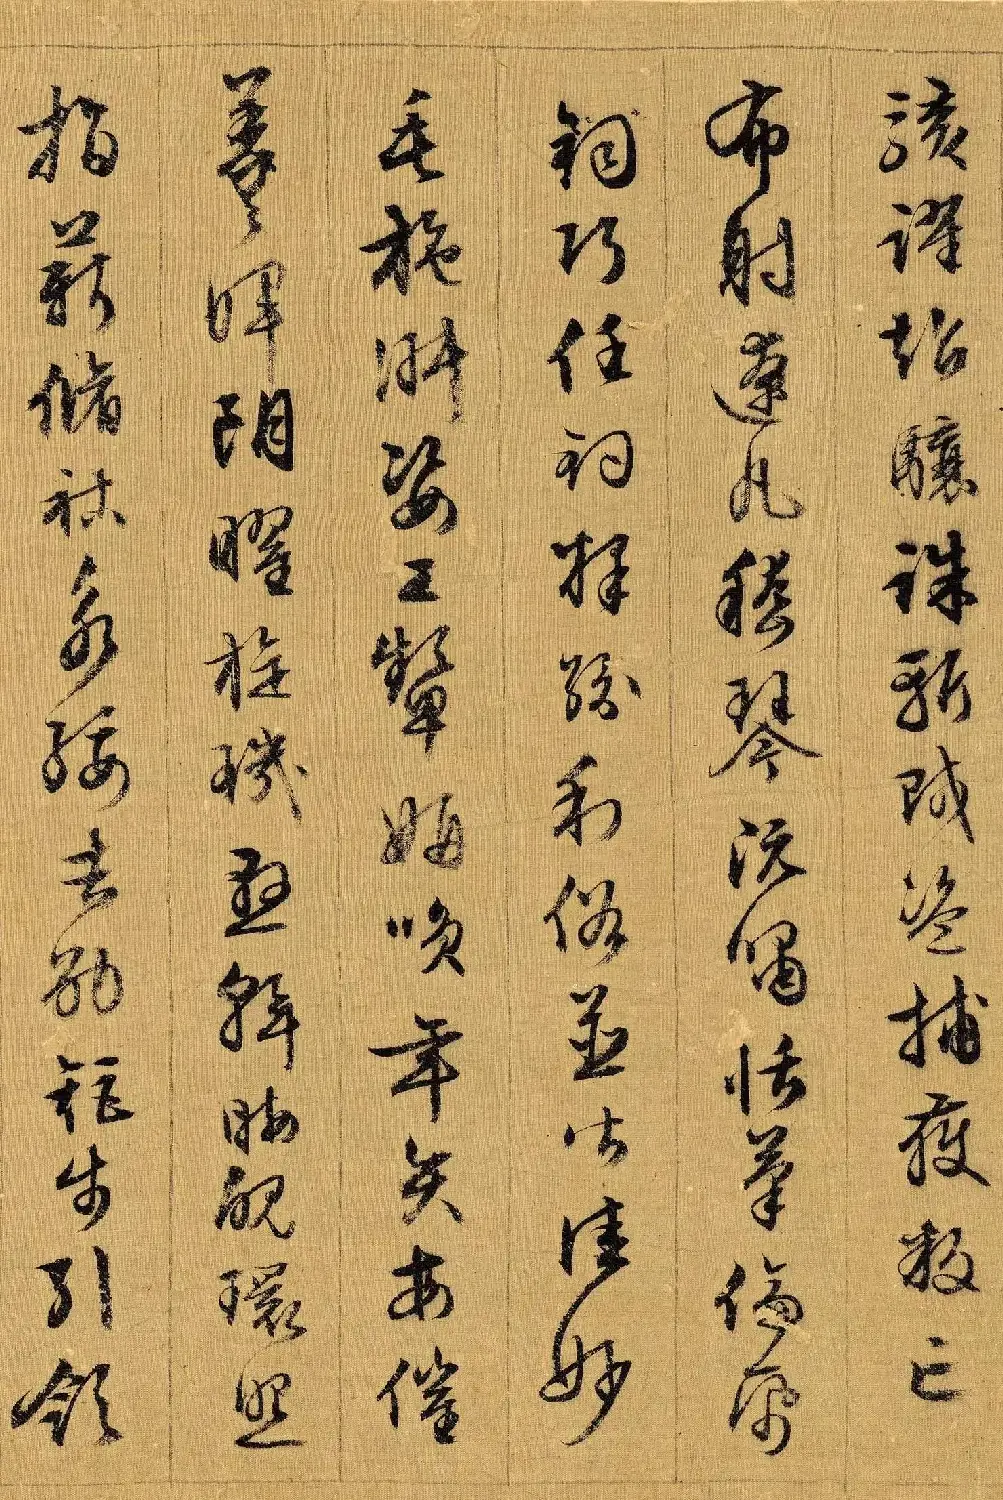 駭躍超驤誅斬賊盜捕獲叛亡
布射遼丸嵇琴阮嘯恬筆倫紙
鈞巧任釣釋紛利俗並皆佳妙
毛施淑姿工顰妍咲年矢每催
羲暉朗曜旋璣懸斡晦魄環照
指薪脩祜永綏吉劭矩步引領